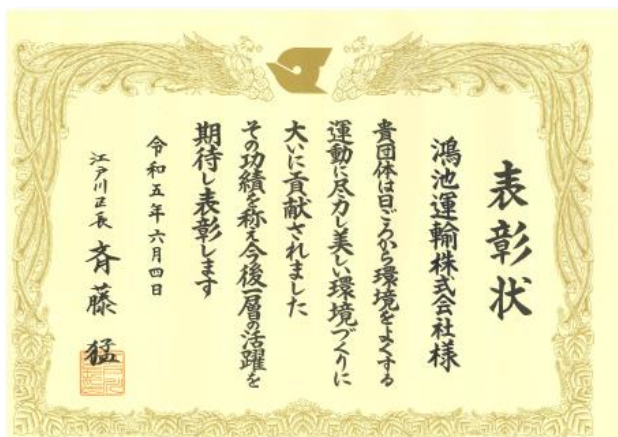 表彰状
鴻池運輸株式会社様
貴団体は日ごろから環境をよくする
運動に尽力し美しい環境づくりに
大いに貢献されました
その功績を称え今後一層の活躍を
期待し表彰します
令和五年六月四日
江戸川区長 斉藤 猛